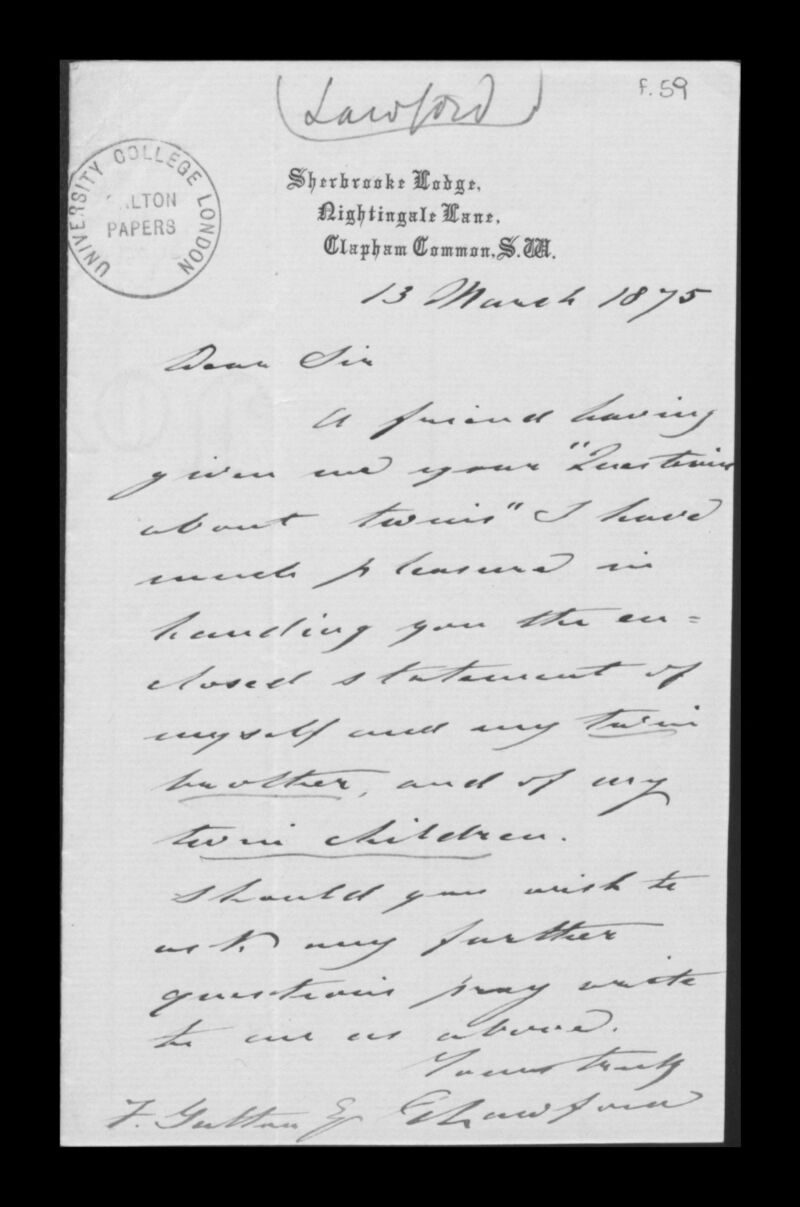 (Lawford)
f.59
UNIVERSITY COLLEGE LONDON
GALTON
PAPERS
Sherbrooke Lodge,
Nightingale Lane,
Clapham Common, S.W.
13 March 1875
Dear Sir
A friend having
given me your "Questions
about twins" I have
much pleasure in
handing you the en=
closed statement of
myself and my twin
brother, and of my
twin children.
Should you wish to
ask any further
questions pray write
to me as above.
Yours truly
Lawford
F. Galton Esq